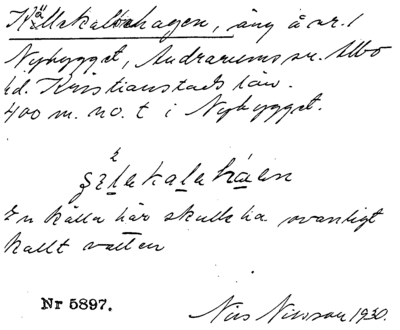 Källekalehagen, äng å nr. 1
Nybygget, Andrarums sn. Albo
hd. Kristianstads län.
400 m. no. t i Nybygget.
En källa här skulle ha ovanligt
kallt vatten
Nr 5897.
Nils Nilsson 1930.